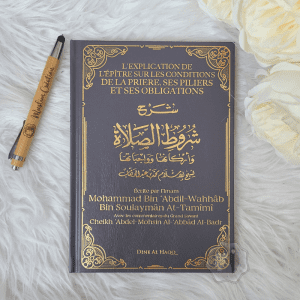 L'EXPLICATION DE
L'ÉPÎTRE SUR LES CONDITIONS
DE LA PRIÈRE, SES PILIERS
ET SES OBLIGATIONS
شرح
شروط الصلاة
وأركانها وواجباتها
Écrite par l'imam
Mohammad Bin 'Abdil-Wahhâb
Bin Soulaymân At-Tamîmî
Avec les commentaires du Grand Savant
Cheikh 'Abdel-Mohsin Al-'Abbâd Al-Badr